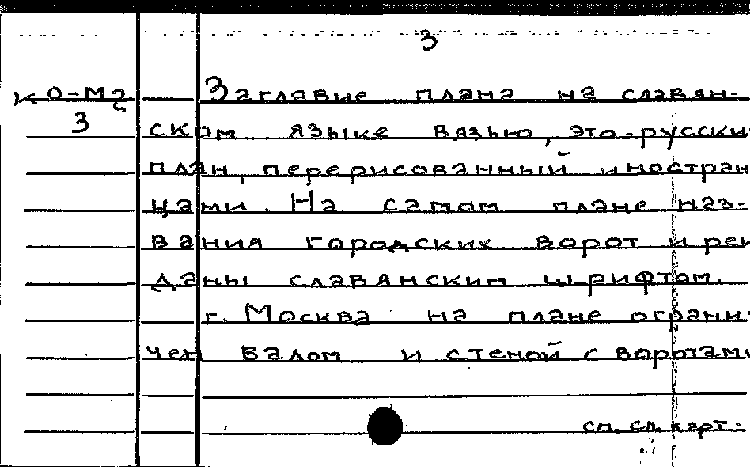 3
К О-М2 Заглавие плана на славян-
3 ском языке вязью, это-русски
план, перерисованный иностран
цами. На самом плане наз-
вания городских ворот и рек
даны славянским шрифтом.
г. Москва на плане ограни
чен валом и стеной с воротами
см. сл. карт.